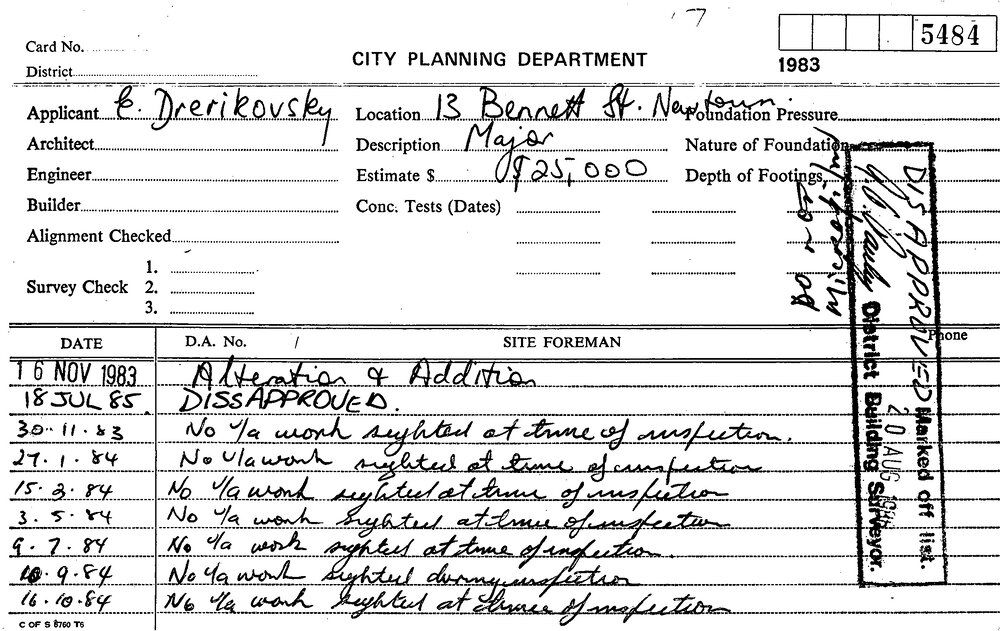 5484
1983
Card No.
CITY PLANNING DEPARTMENT
District
Applicant E. Drerikovsky Location 13 Bennett St. Newtown. Foundation Pressure
Architect Description Major Nature of Foundation
Engineer Estimate $ $25,000 Depth of Footings
Builder Conc. Tests (Dates)
Alignment Checked
1.
Survey Check 2.
3.
Do not
Microfilm
DISAPPROVED
Marked off list.
20 AUG
District Building Surveyor.
DATE D.A. No. / SITE FOREMAN Phone
16 NOV 1983 Alteration & Addition
18 JUL 85. DISSAPPROVED.
30.11.83 No u/a work sighted at time of inspection.
27.1.84 No u/a work sighted at time of inspection
15.3.84 No u/a work sighted at time of inspection
3.5.84 No u/a work sighted at time of inspection
9.7.84 No u/a work sighted at time of inspection.
10.9.84 No u/a work sighted during inspection
16.10.84 No u/a work sighted at time of inspection
C OF S 8760 T6